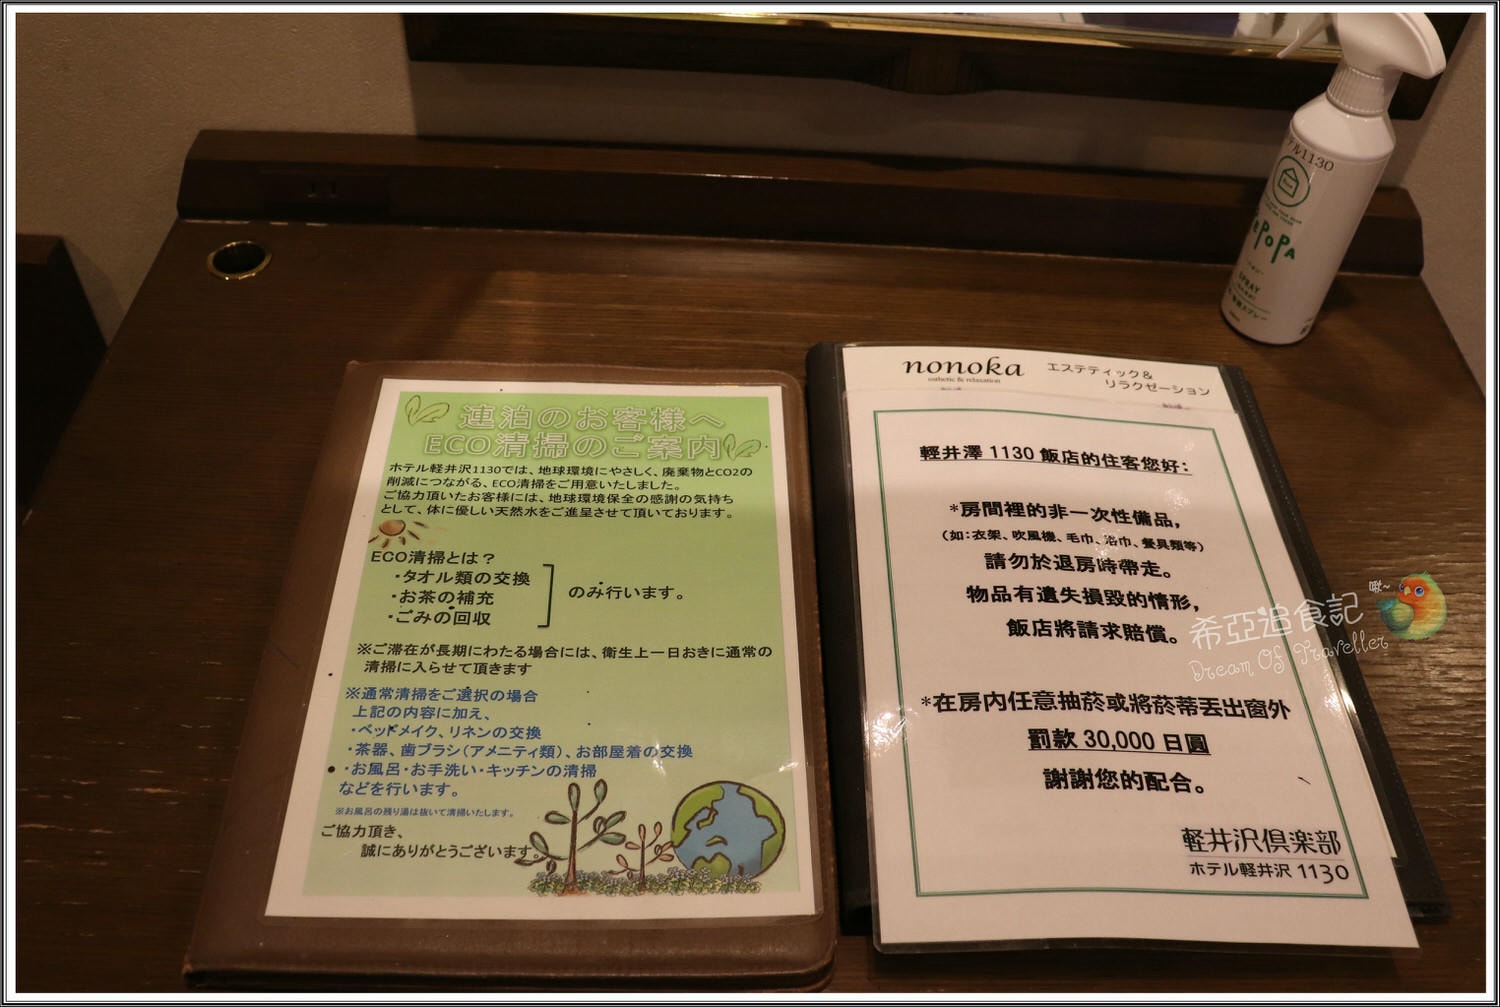 連泊のお客様へ
ECO清掃のご案内
ホテル軽井沢1130では、地球環境にやさしく、廃棄物とCO2の
削減につながる、ECO清掃をご用意いたしました。
ご協力頂いたお客様には、地球環境保全の感謝の気持ち
として、体に優しい天然水をご進呈させて頂いております。
ECO清掃とは？
・タオル類の交換
・お茶の補充
・ごみの回収
のみ行います。
※ご滞在が長期にわたる場合には、衛生上一日おきに通常の
清掃に入らせて頂きます
※通常清掃をご選択の場合
上記の内容に加え、
・ベッドメイク、リネンの交換
・茶器、歯ブラシ（アメニティ類）、お部屋着の交換
・お風呂・お手洗い・キッチンの清掃
などを行います。
※お風呂の残り湯は抜いて清掃いたします。
ご協力頂き、
誠にありがとうございます。
nonoka
esthetic & relaxation
エステティック＆
リラクゼーション
輕井澤 1130 飯店的住客您好：
*房間裡的非一次性備品，
（如：衣架、吹風機、毛巾、浴巾、餐具類等）
請勿於退房時帶走。
物品有遺失損毀的情形，
飯店將請求賠償。
*在房內任意抽菸或將菸蒂丟出窗外
罰款 30,000 日圓
謝謝您的配合。
軽井沢倶楽部
ホテル軽井沢 1130
ル1130
EPOPA
SPRAY
希亞追食記
Dream Of Traveller